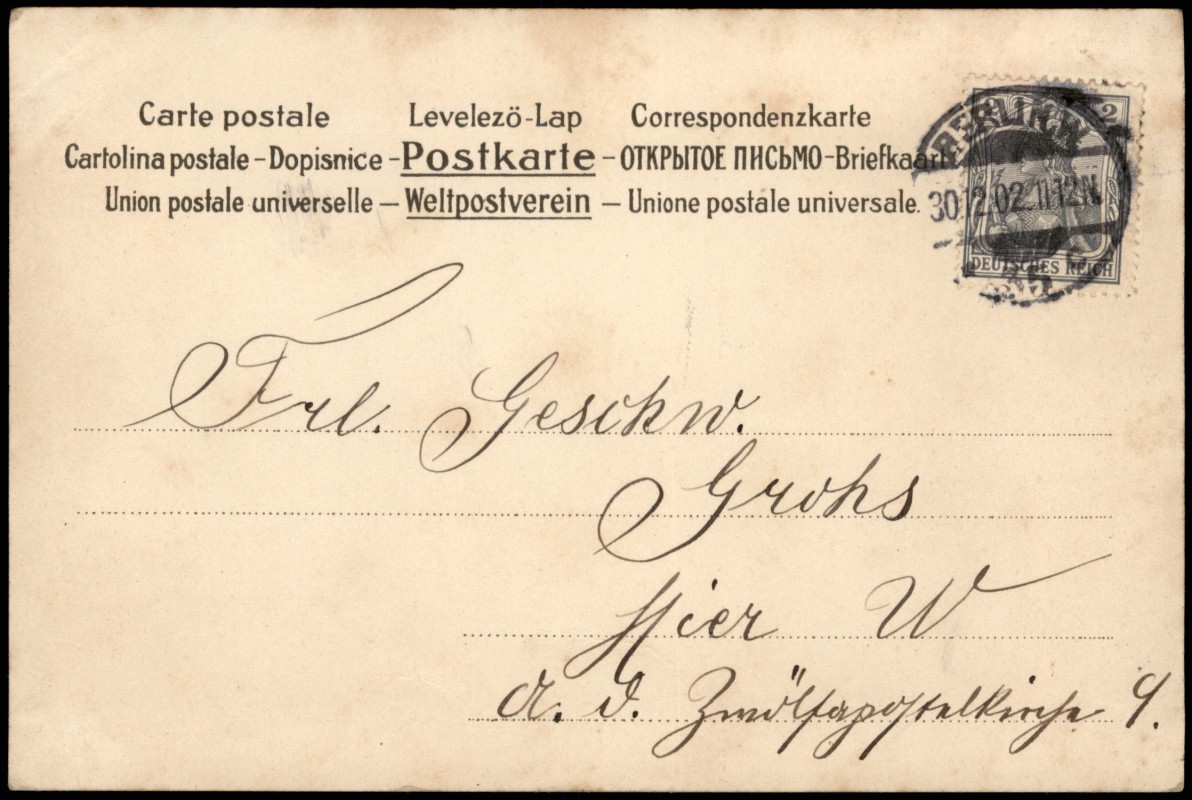 Carte postale Levelezö-Lap Correspondenzkarte
Cartolina postale – Dopisnice – Postkarte – ОТКРЫТОЕ ПИСЬМО – Briefkaart
Union postale universelle – Weltpostverein – Unione postale universale.
2
BERLIN W
30.12.02.11-12N.
DEUTSCHES REICH
Frl. Geschw.
Grohs
Hier W
a. d. Zwölfapostelkirche 9.